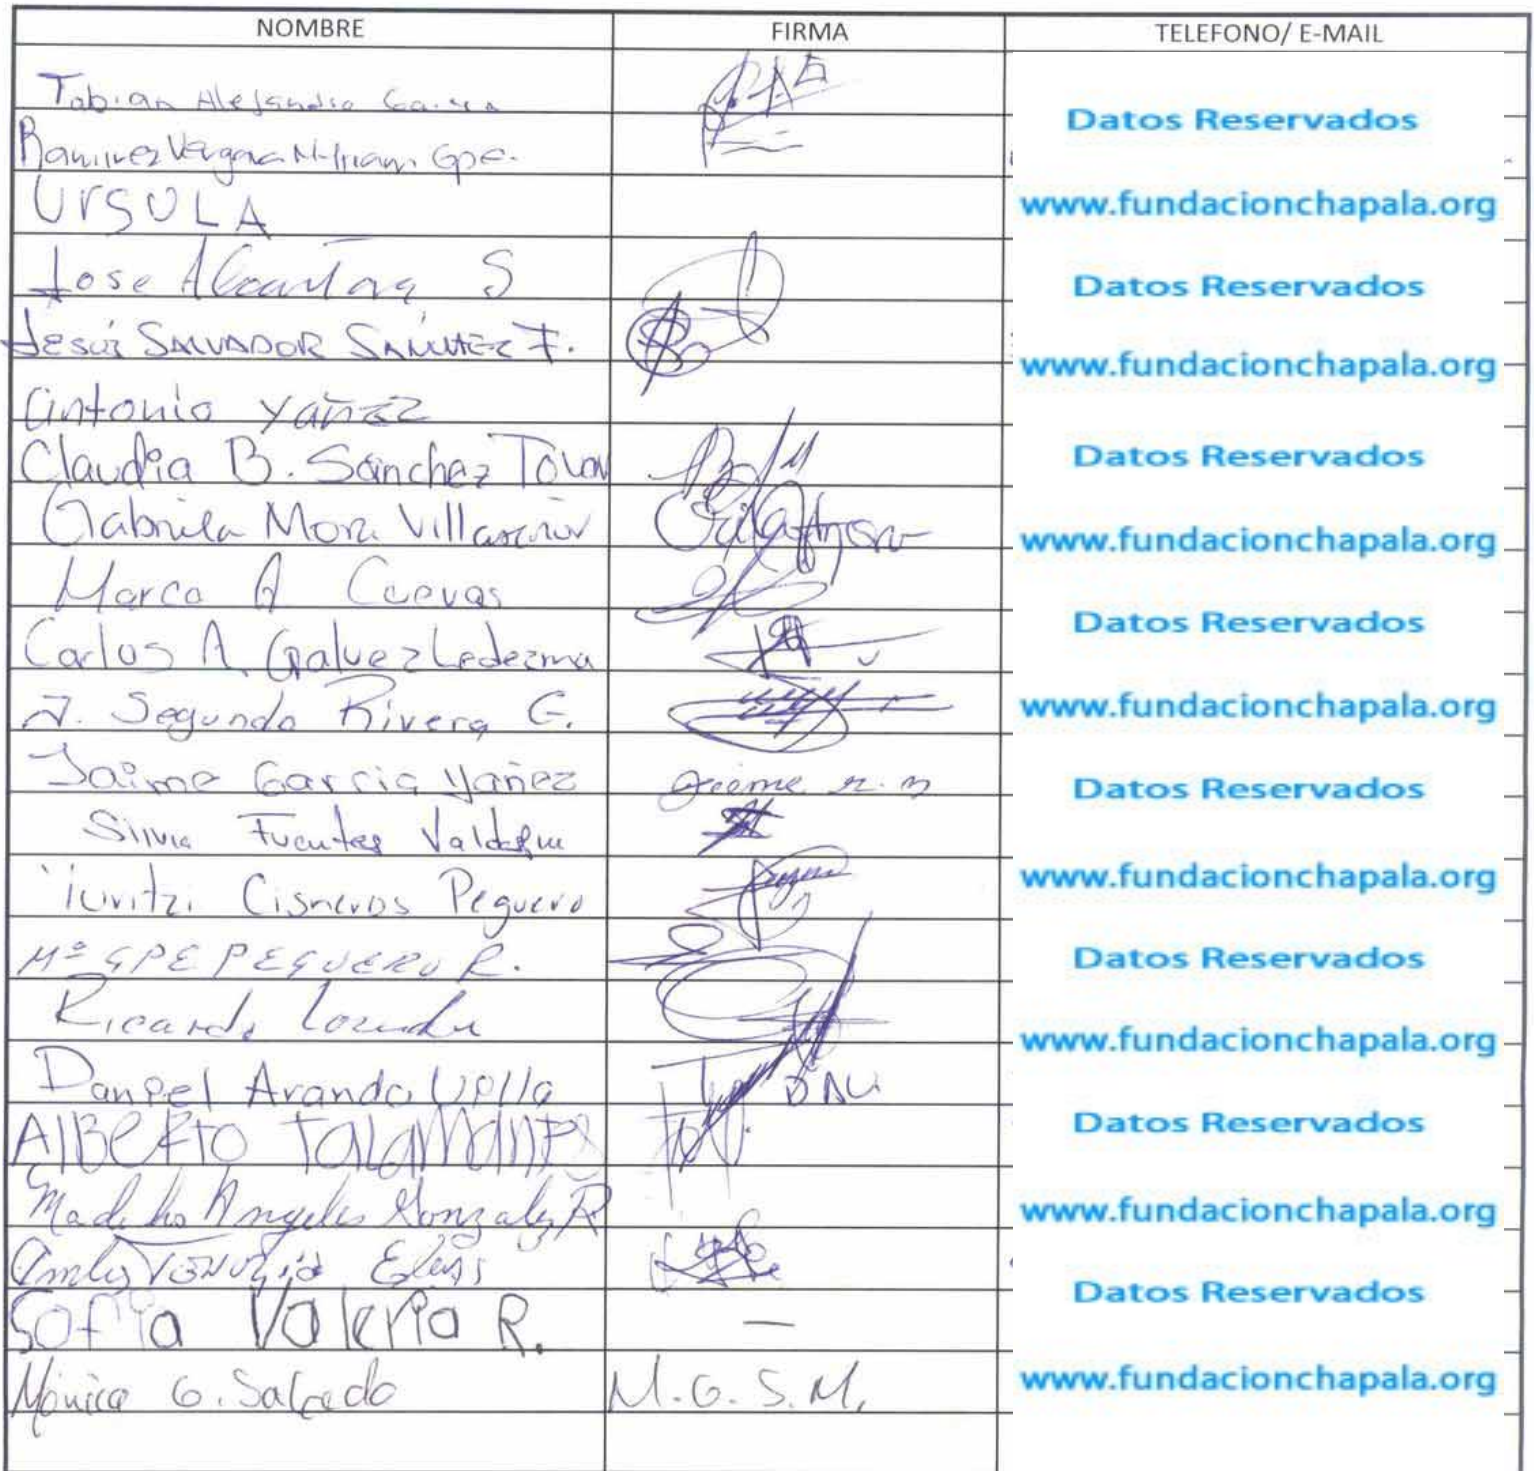 NOMBRE FIRMA TELEFONO/ E-MAIL
Fabian Alejandro Garcia
Datos Reservados
Ramirez Vergara Miriam Gpe.
URSULA
www.fundacionchapala.org
Jose Alcantara S
Datos Reservados
Jesús SALVADOR SANCHEZ F.
www.fundacionchapala.org
Antonio Yañez
Claudia B. Sanchez Tovar
Datos Reservados
Gabriela Mora Villaseñor
www.fundacionchapala.org
Marco A Cuevas
Datos Reservados
Carlos A. Galvez Ledezma
J. Segundo Rivera G.
www.fundacionchapala.org
Jaime Garcia Yañez
Datos Reservados
Silvia Fuentes
Iuritzi Cisneros Peguero
www.fundacionchapala.org
Mª GPE PEGUERO R.
Datos Reservados
Ricardo
www.fundacionchapala.org
Daniel Aranda
ALBERTO TALAMANTES
Datos Reservados
Ma de los Angeles Gonzalez R
www.fundacionchapala.org
Datos Reservados
Sofia Valeria R. —
Mónica G. Salcedo M.G.S.M.
www.fundacionchapala.org